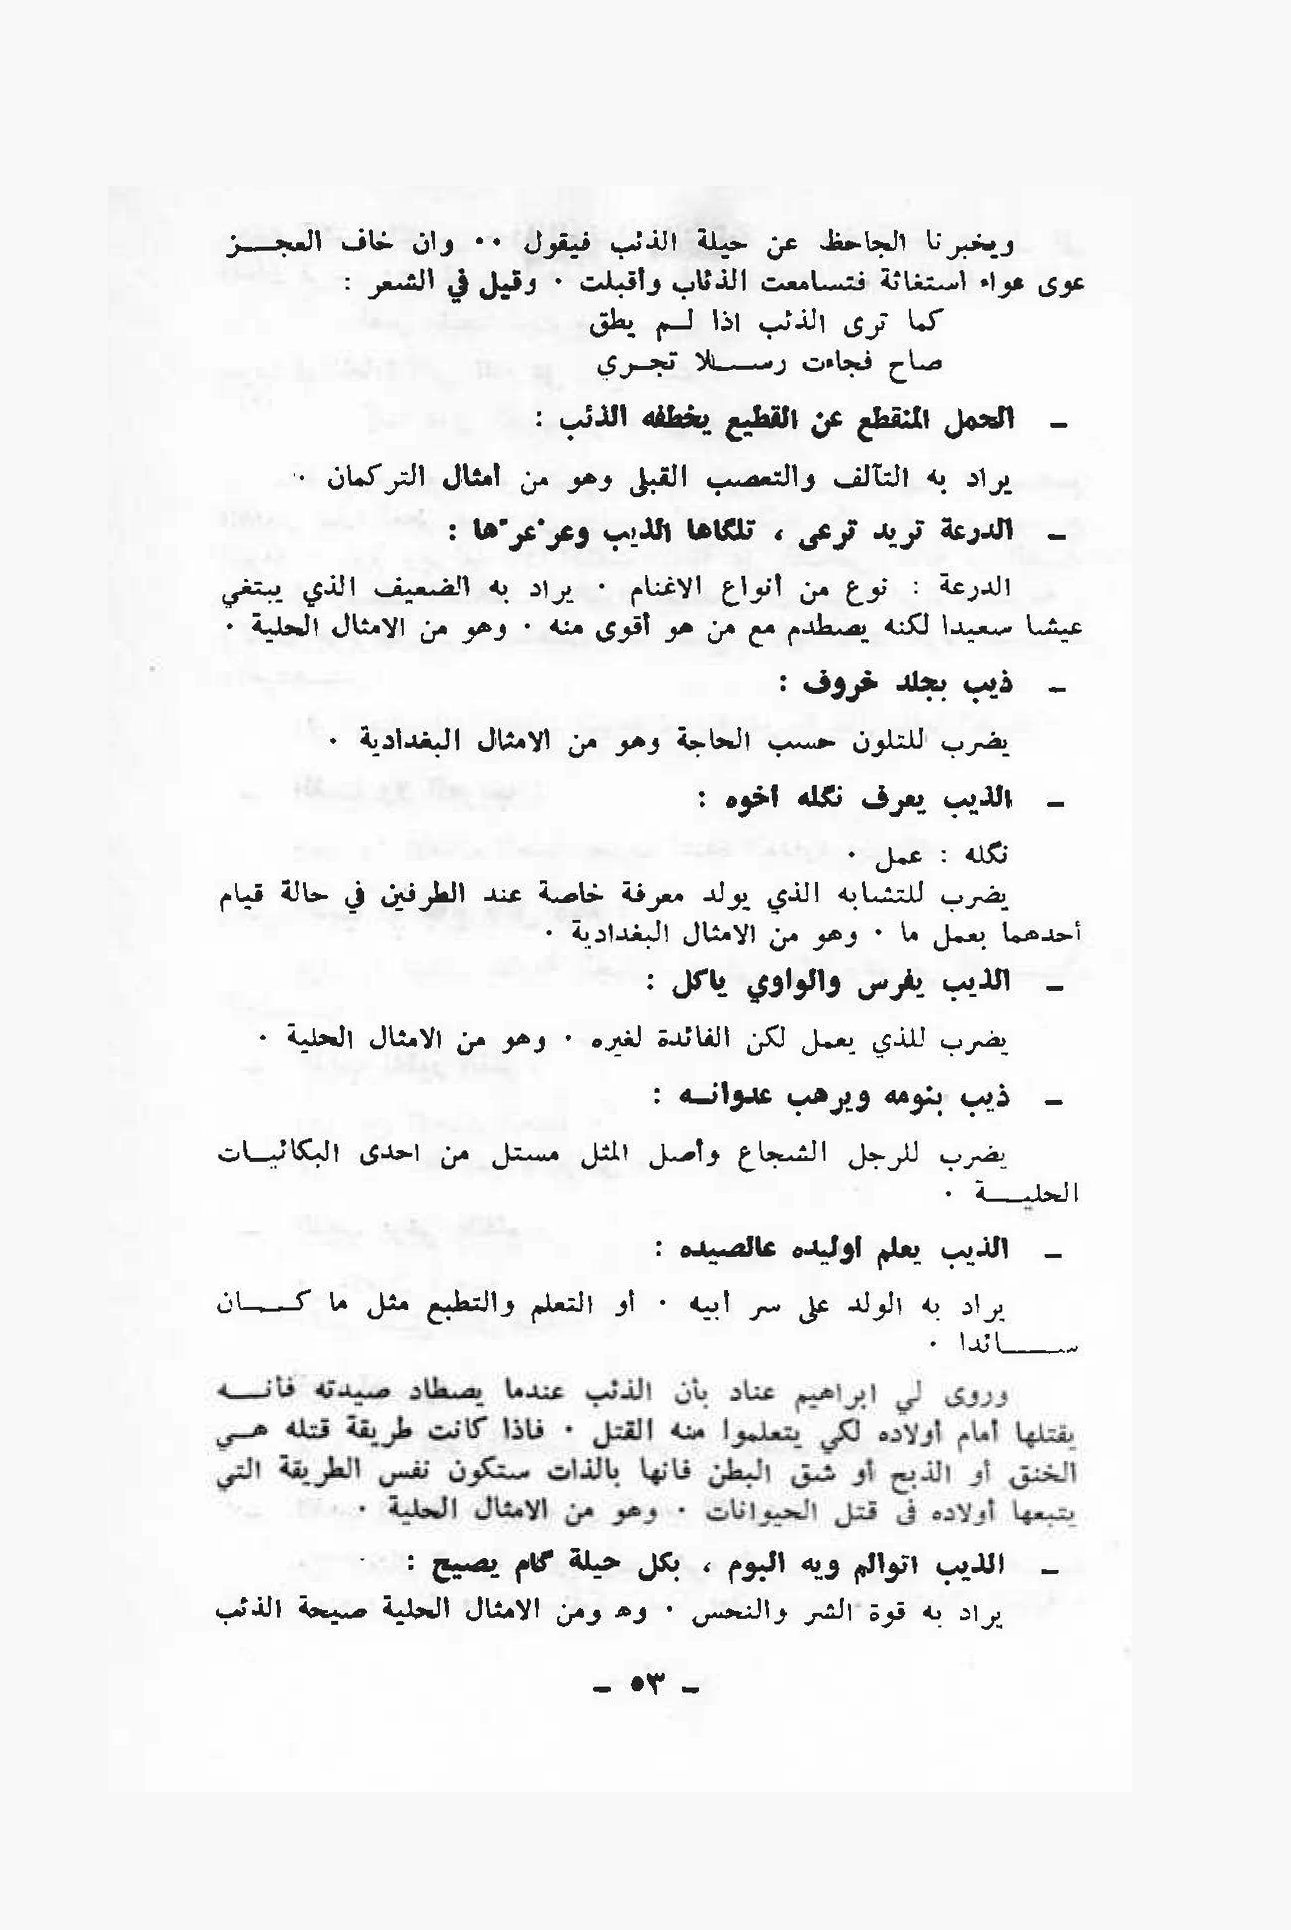 ويخبرنا الجاحظ عن حيلة الذئب فيقول ٠٠ وان خاف العجـــز
عوى عواء استغاثة فتسامعت الذئاب وأقبلت ٠ وقيل في الشعر :
كما ترى الذئب اذا لـم يطق
صاح فجاءت رســـلا تجـري
ـ الحمل المنقطع عن القطيع يخطفه الذئب :
يراد به التآلف والتعصب القبلي وهو من أمثال التركمان ٠
ـ الدرعة تريد ترعى ، تلگاها الذيب وعرْعرَها :
الدرعة : نوع من أنواع الاغنام ٠ يراد به الضعيف الذي يبتغي
عيشا سعيدا لكنه يصطدم مع من هو أقوى منه ٠ وهو من الامثال الحلية ٠
ـ ذيب بجلد خروف :
يضرب للتلون حسب الحاجة وهو من الامثال البغدادية ٠
ـ الذيب يعرف نگله أخوه :
نگله : عمل ٠
يضرب للتشابه الذي يولد معرفة خاصة عند الطرفين في حالة قيام
أحدهما بعمل ما ٠ وهو من الامثال البغدادية ٠
ـ الذيب يفرس والواوي ياكل :
يضرب للذي يعمل لكن الفائدة لغيره ٠ وهو من الامثال الحلية ٠
ـ ذيب بنومه ويرهب عدوانـه :
يضرب للرجل الشجاع وأصل المثل مستل من احدى البكائيـات
الحليـــة ٠
ـ الذيب يعلم اوليده عالصيده :
يراد به الولد على سر أبيه ٠ أو التعلم والتطبع مثل ما كـــان
ســـائدا ٠
وروى لي ابراهيم عناد بأن الذئب عندما يصطاد صيدته فأنـــه
يقتلها أمام أولاده لكي يتعلموا منه القتل ٠ فاذا كانت طريقة قتله هـي
الخنق أو الذبح أو شق البطن فانها بالذات ستكون نفس الطريقة التي
يتبعها أولاده في قتل الحيوانات ٠ وهو من الامثال الحلية ٠
ـ الذيب اتوالم ويه البوم ، بكل حيلة گام يصيح :
يراد به قوة الشر والنحس ٠ وه ومن الامثال الحلية صيحة الذئب
ـ ٥٣ ـ